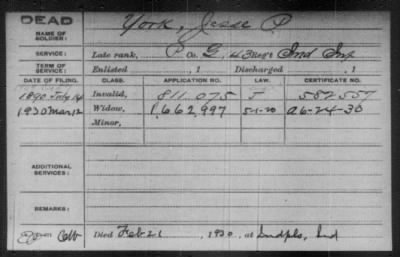 DEAD
NAME OF SOLDIER: York, Jesse P.
SERVICE: Late rank, P Co. G, 43 Reg't Ind Inf
TERM OF SERVICE: Enlisted , 1 Discharged , 1
DATE OF FILING. CLASS. APPLICATION NO. LAW. CERTIFICATE NO.
1890 July 14 Invalid, 811.075 J 582.557
1930 Mar 12 Widow, 1,662,997 5-1-20 A 6-24-30
Minor,
ADDITIONAL SERVICES:
REMARKS:
Died Feb 21 , 1930, at Indpls, Ind